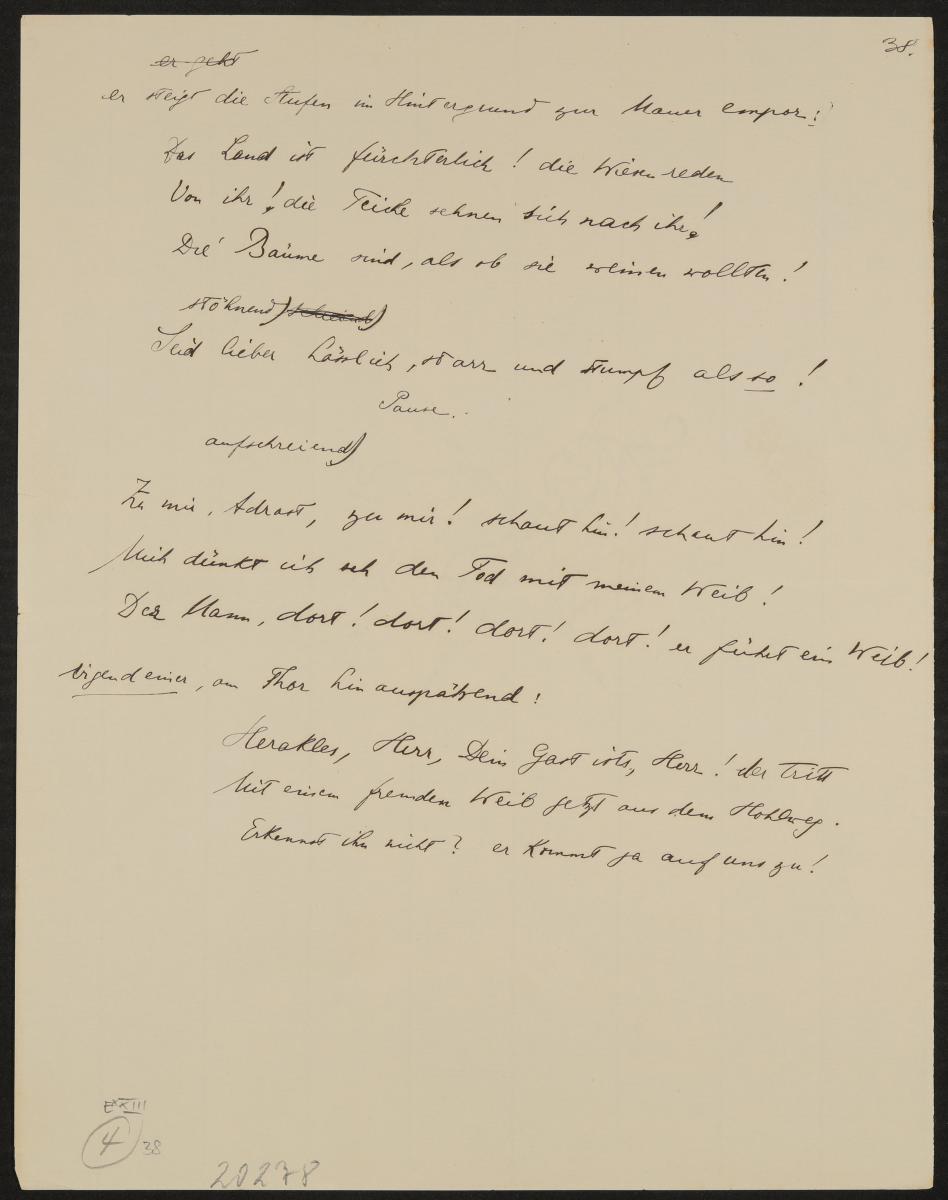 38.
er geht
er steigt die Stufen im Hintergrund zur Mauer empor:
Das Land ist fürchterlich! die Wiesen reden
Von ihr! die Teiche sehnen sich nach ihr!
Die Bäume sind, als ob sie weinen wollten!
stöhnend) schreiend)
Seid lieber hässlich, starr und stumpf als so!
Pause.
aufschreiend)
Zu mir, Adrast, zu mir! schaut hin! schaut hin!
Mich dünkt ich seh den Tod mit meinem Weib!
Der Mann, dort! dort! dort! dort! er führt ein Weib!
Irgend einer, am Thor hinausspähend:
Herakles, Herr, Dein Gast ists, Herr! der tritt
Mit einem fremden Weib jetzt aus dem Hohlweg.
Erkennst ihn nicht? er kommt ja auf uns zu!
E XXIII
4 38
20278